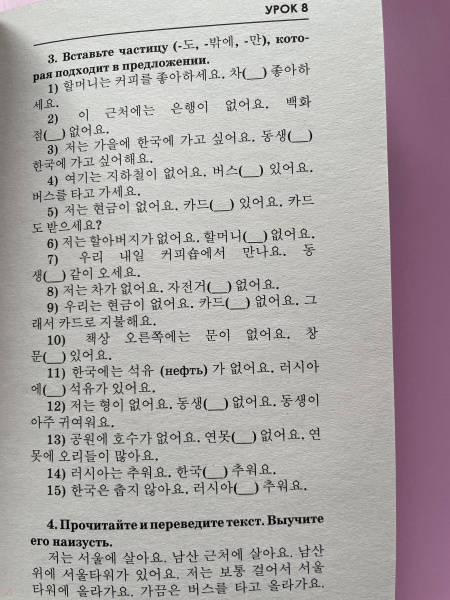 УРОК 8
3. Вставьте частицу (-도, -밖에, -만), кото-
рая подходит в предложении.
1) 할머니는 커피를 좋아하세요. 차(__) 좋아하
세요.
2) 이 근처에는 은행이 없어요. 백화
점(__) 없어요.
3) 저는 가을에 한국에 가고 싶어요. 동생(__)
한국에 가고 싶어해요.
4) 여기는 지하철이 없어요. 버스(__) 있어요.
버스를 타고 가세요.
5) 저는 현금이 없어요. 카드(__) 있어요. 카드
도 받으세요?
6) 저는 할아버지가 없어요. 할머니(__) 없어요.
7) 우리 내일 커피숍에서 만나요. 동
생(__) 같이 오세요.
8) 저는 차가 없어요. 자전거(__) 없어요.
9) 우리는 현금이 없어요. 카드(__) 없어요. 그
래서 카드로 지불해요.
10) 책상 오른쪽에는 문이 없어요. 창
문(__) 있어요.
11) 한국에는 석유 (нефть) 가 없어요. 러시아
에(__) 석유가 있어요.
12) 저는 형이 없어요. 동생(__) 없어요. 동생이
아주 귀여워요.
13) 공원에 호수가 없어요. 연못(__) 없어요. 연
못에 오리들이 많아요.
14) 러시아는 추워요. 한국(__) 추워요.
15) 한국은 춥지 않아요. 러시아(__) 추워요.
4. Прочитайте и переведите текст. Выучите
его наизусть.
저는 서울에 살아요. 남산 근처에 살아요. 남산
위에 서울타워가 있어요. 저는 보통 걸어서 서울
타워에 올라가요. 가끔은 버스를 타고 올라가요.